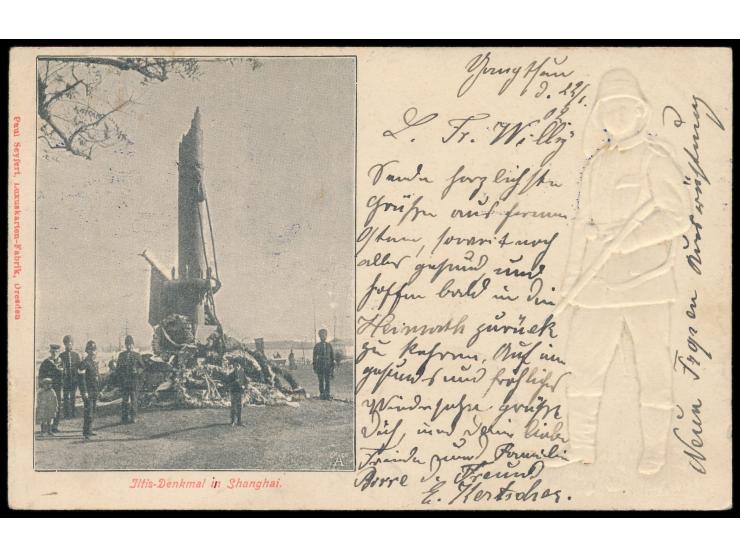 Paul Seyfert, Luxuskarten-Fabrik, Dresden
Iltis-Denkmal in Shanghai.
Yangtsun
d. 22/1.
02
L. Fr. Willy
Sende herzlichste
Grüße aus fernem
Osten, soweit noch
alles gesund und
hoffen bald in die
Heimath zurück
zu kehren. Auf ein
gesundes und fröhliches
Wiedersehn grüßt
Dich, und deine liebe
Freunde und Familie
d. Freund
E. Kertscher.
Neuen Ausrüstung